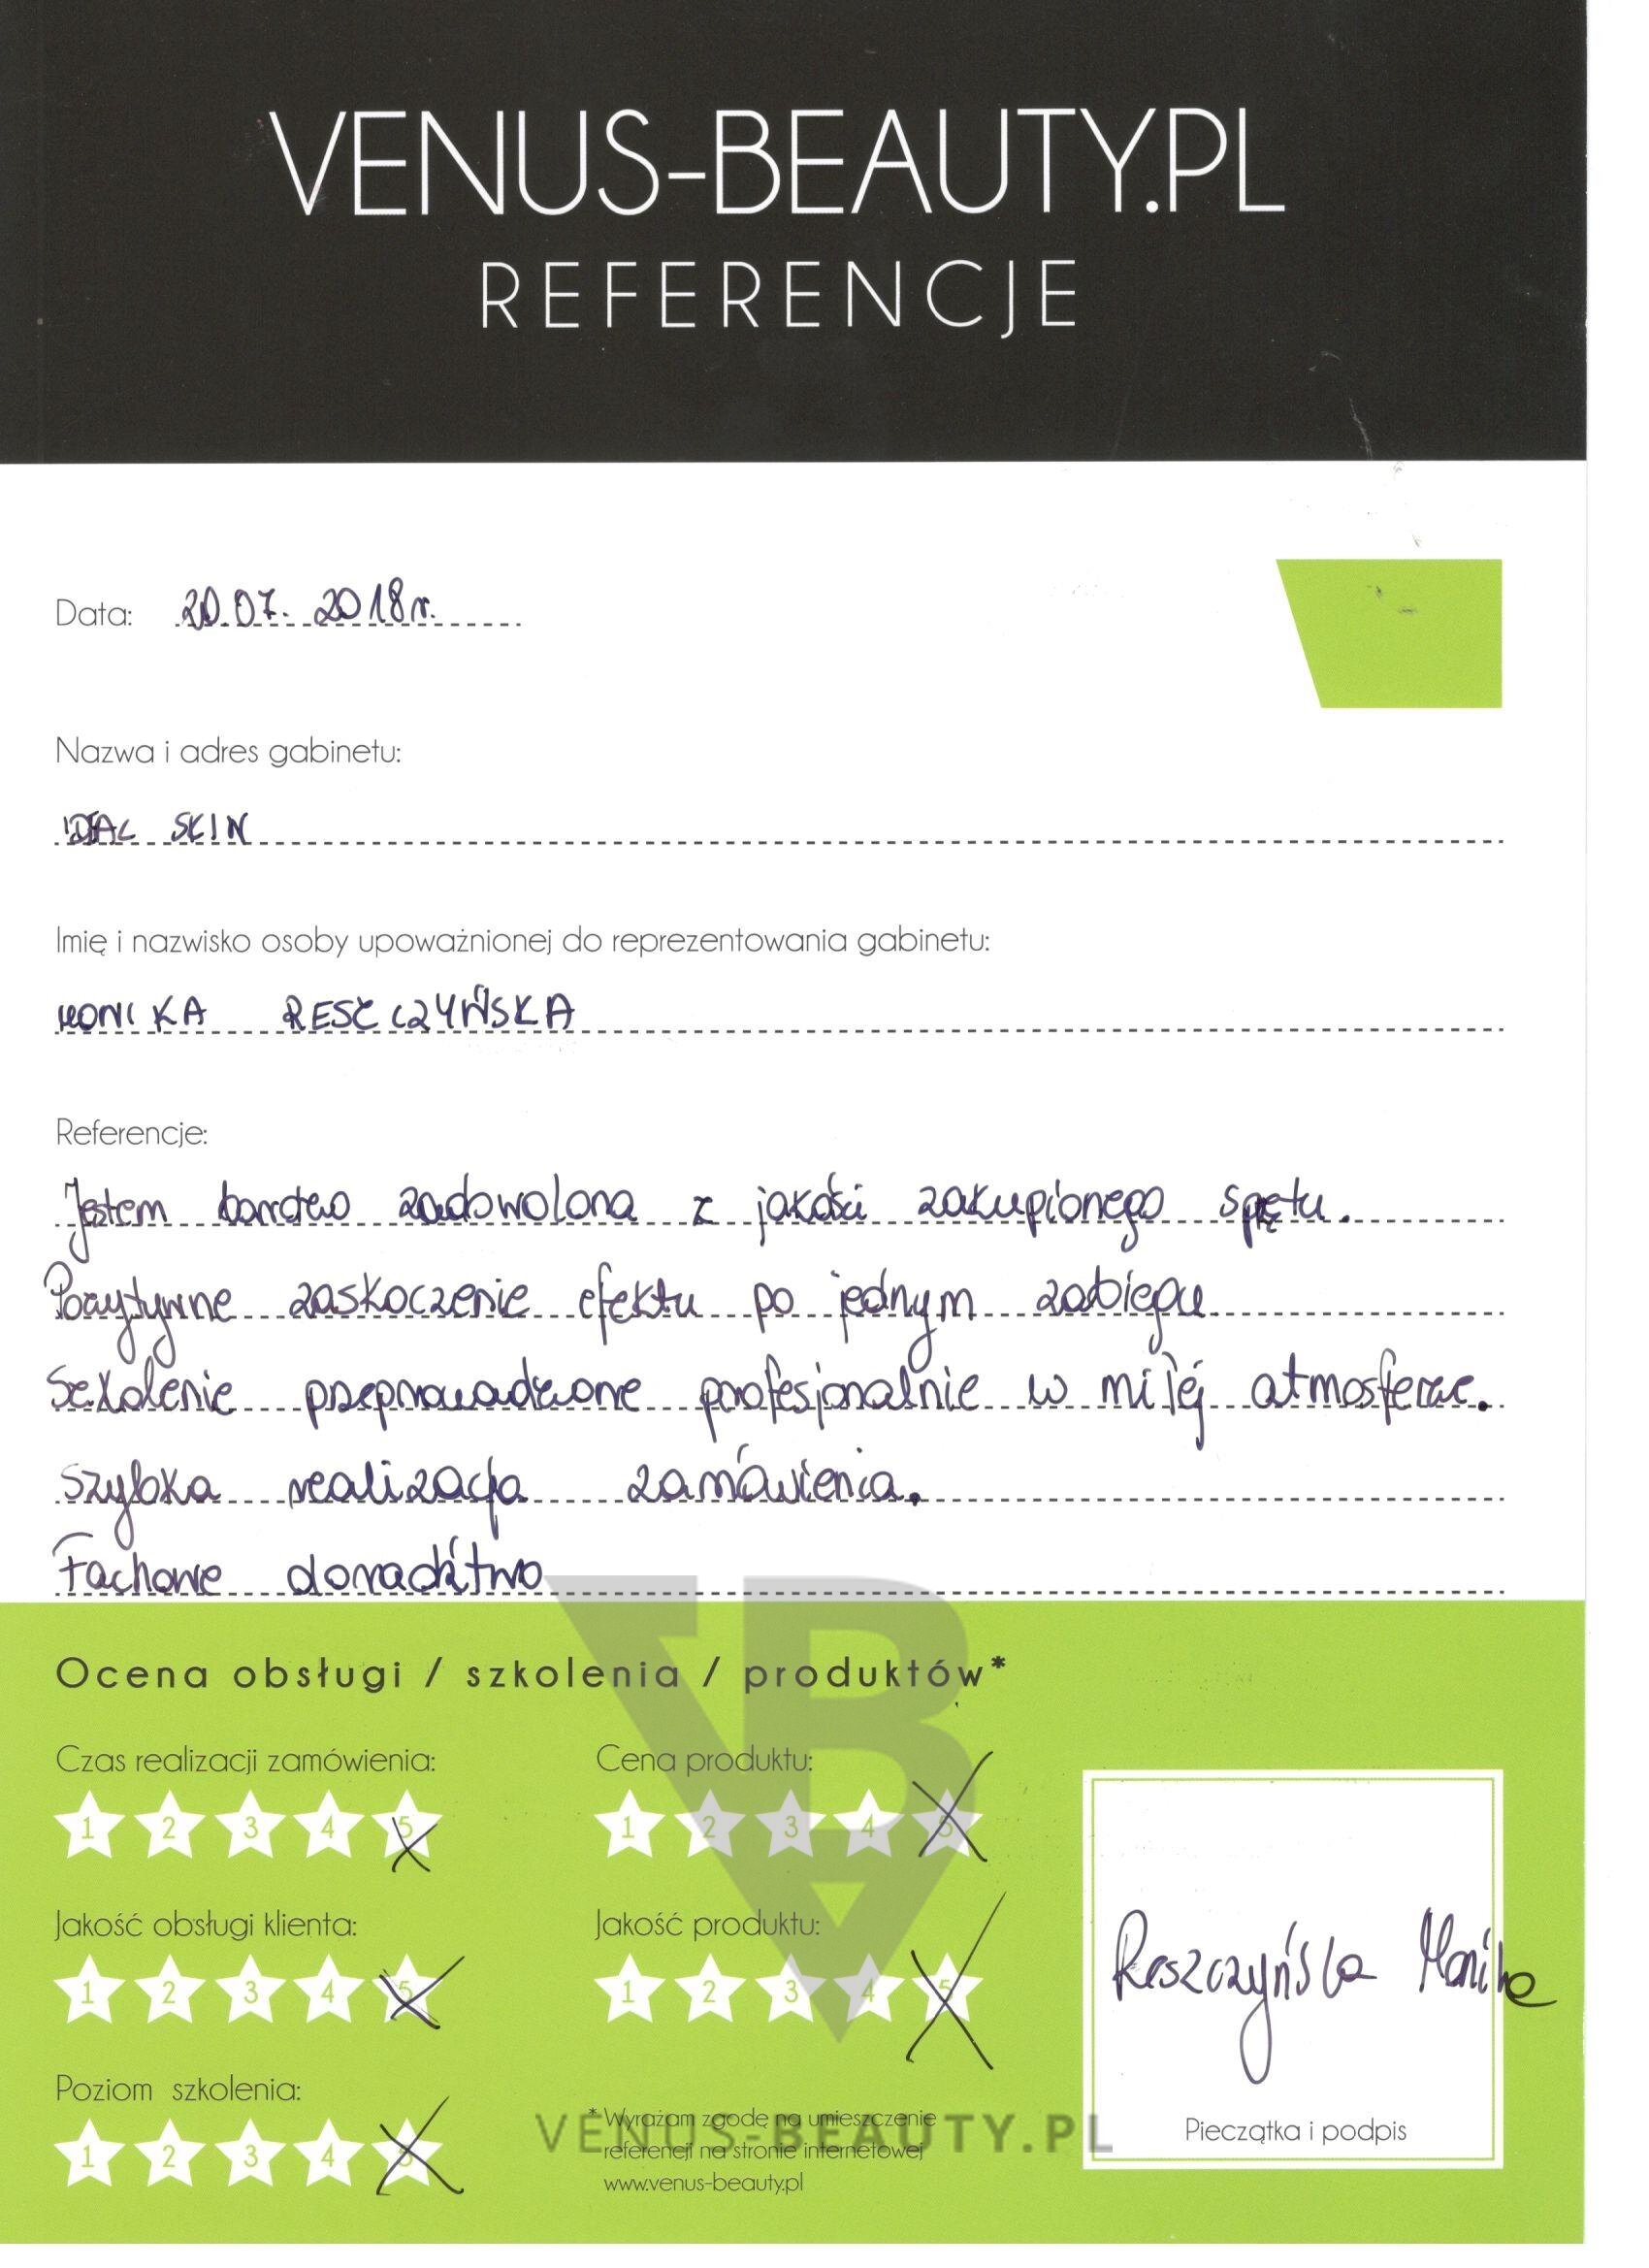 VENUS-BEAUTY.PL
REFERENCJE
Data: 20.07. 2018r.
Nazwa i adres gabinetu:
IDEAL SKIN
Imię i nazwisko osoby upoważnionej do reprezentowania gabinetu:
MONIKA RESZCZYŃSKA
Referencje:
Jestem bardzo zadowolona z jakości zakupionego sprzętu.
Pozytywne zaskoczenie efektu po jednym zabiegu
Szkolenie przeprowadzone profesjonalnie w miłej atmosferze.
Szybka realizacja zamówienia.
Fachowe doradctwo
Ocena obsługi / szkolenia / produktów*
Czas realizacji zamówienia: Cena produktu:
1 2 3 4 5 1 2 3 4 5
Jakość obsługi klienta: Jakość produktu:
1 2 3 4 5 1 2 3 4 5
Reszczyńska Monika
Poziom szkolenia:
1 2 3 4 5
* Wyrażam zgodę na umieszczenie
referencji na stronie internetowej
www.venus-beauty.pl
Pieczątka i podpis
VENUS-BEAUTY.PL